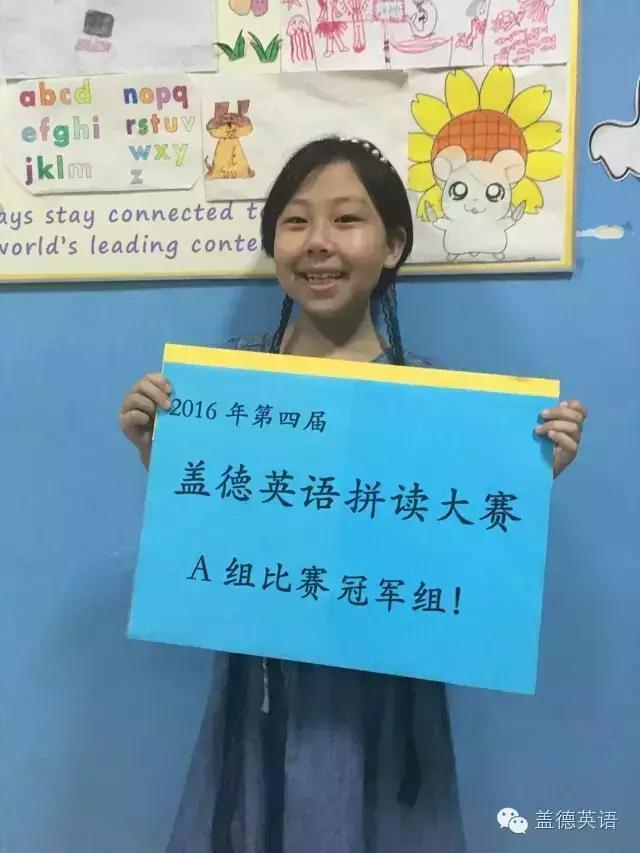 abcd nopq
efghi rstuv
jklm wxy
z
ays stay connected to
world's leading conte
2016 年第四届
盖德英语拼读大赛
A 组比赛冠军组!
盖德英语